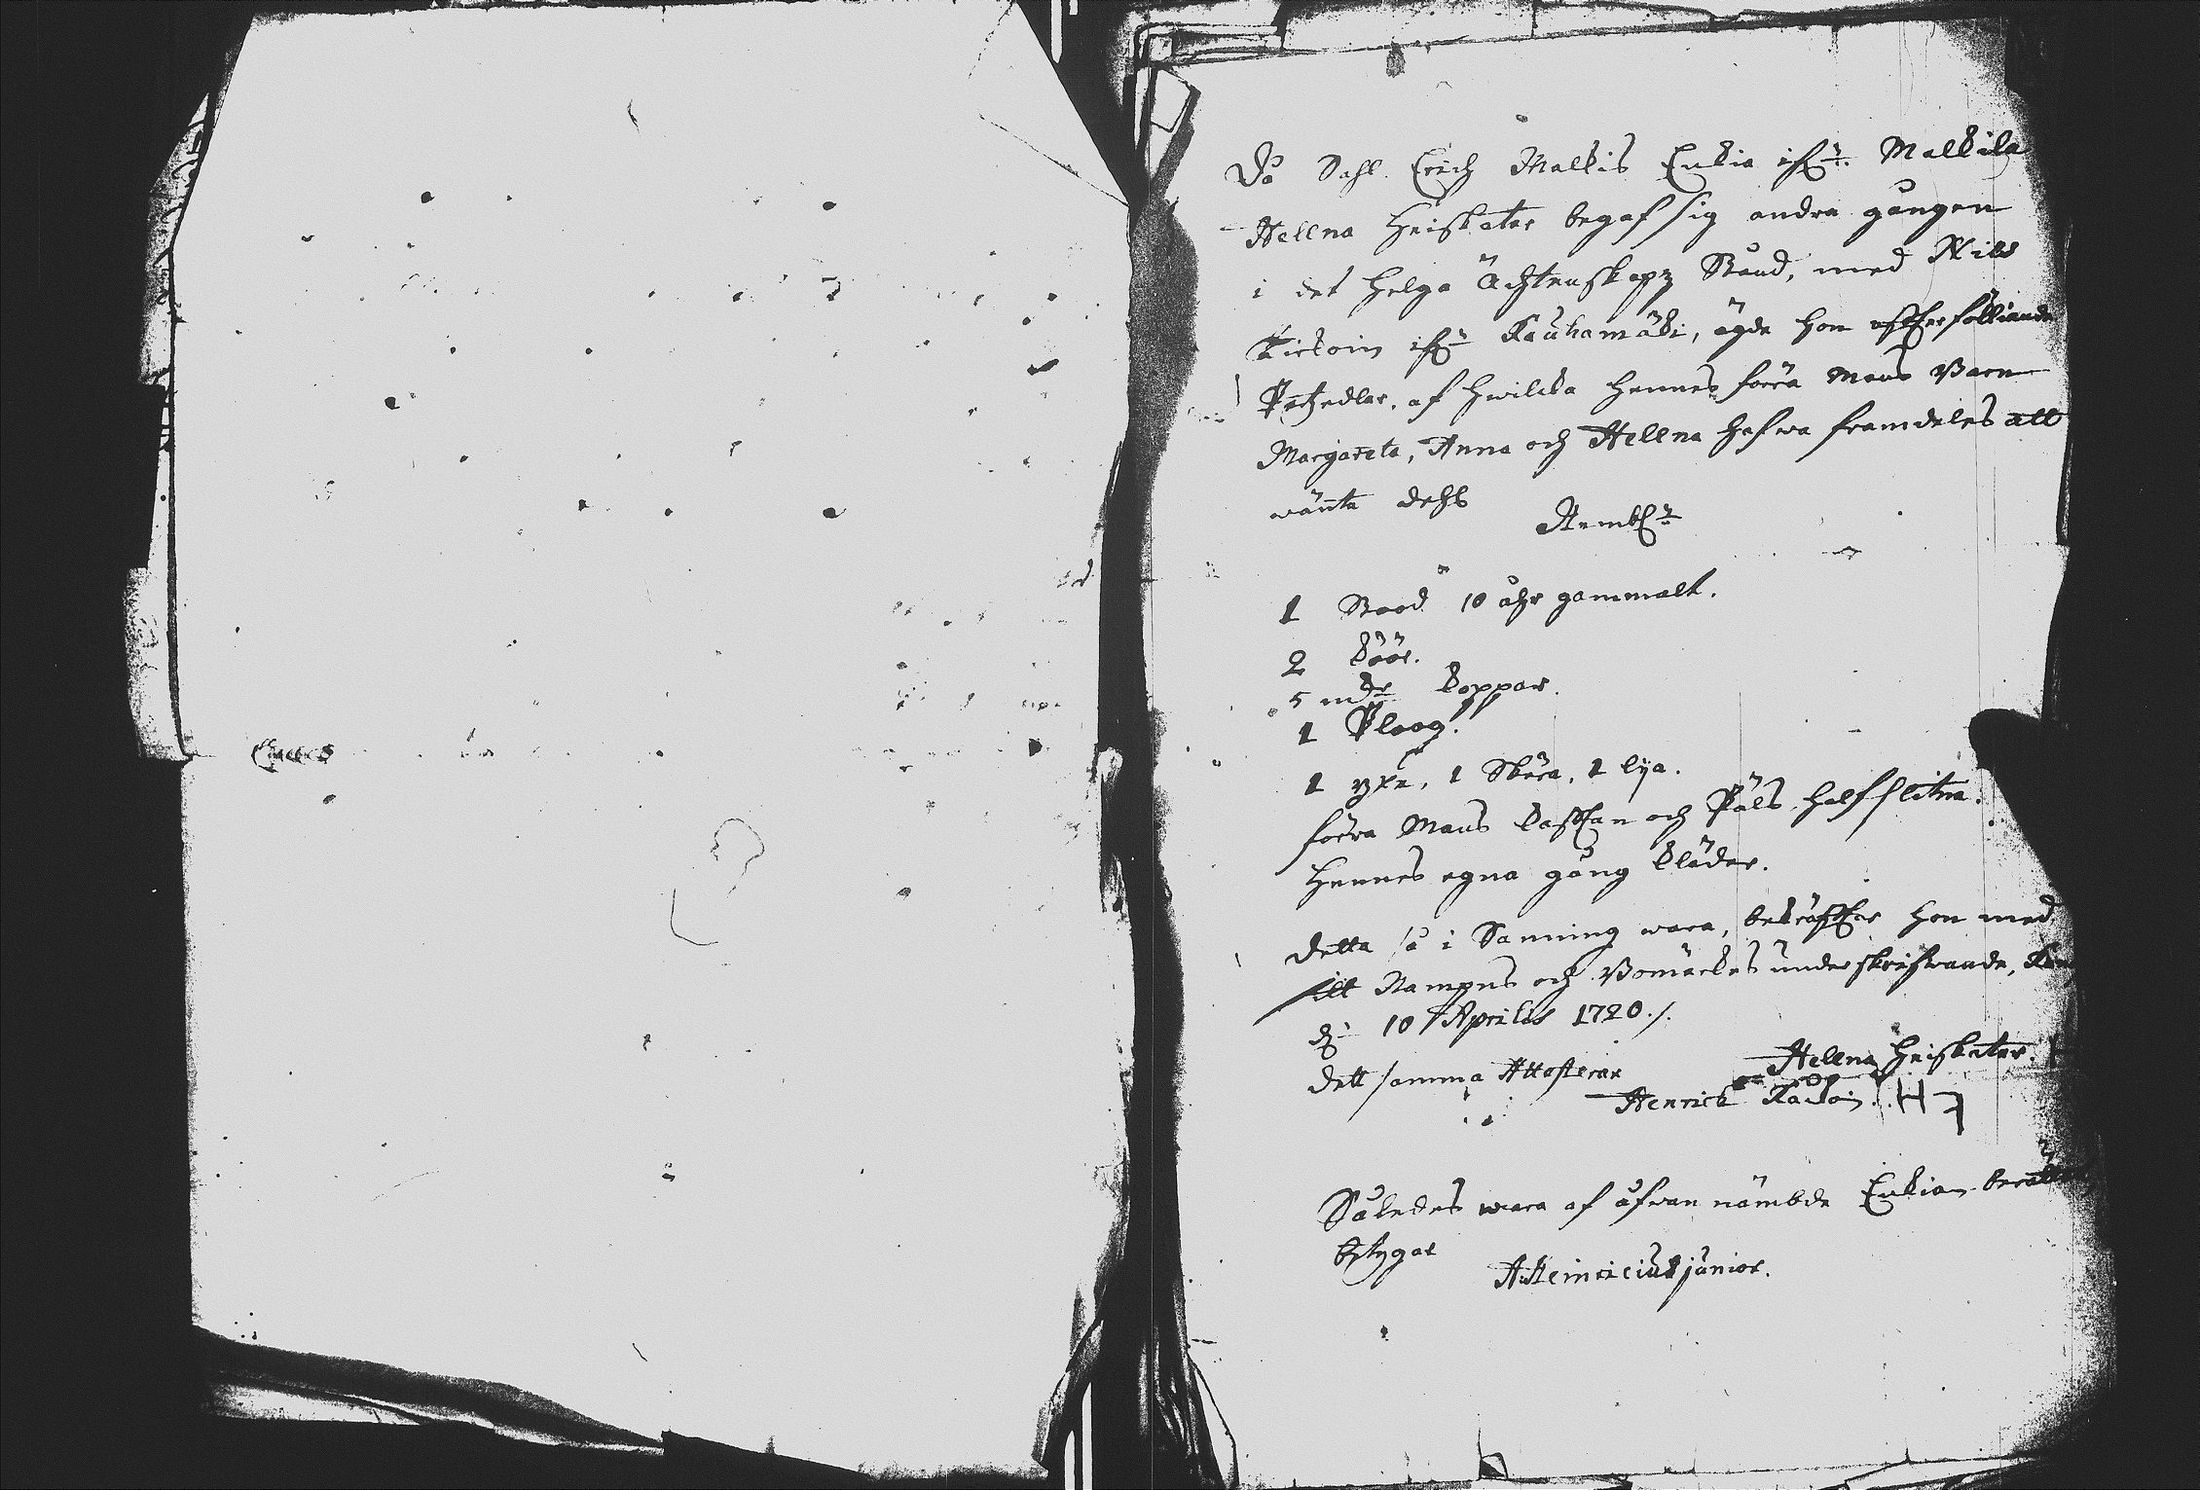 Då Sahl. Erich Malkis Enkia ifrån Malkila
Hellna Heiskatar begaf sig andra gången
i det helga Ächtenskapz Stånd, med Nils
Kickoin ifrån Kauhamäki, ägde hon efterfölliande
Persedlar, af hwilcka hennes förra Mans Barn
Margareta, Anna och Hellna hafwa framdeles att
wänta dehls
1 Stood 10 åhr gammalt.
2 köör.
5 koppar.
1 Ploog.
1 yxe, 1 Skera, 1 lija.
förra Mans kasttan och Päls half slitna.
Hennes egna gång kläder.
Detta så i Sanning wara, bekräfter hon med
sitt Nampns och Bomärckes underskrifwande,
d. 10 Aprilis 1720./.
Hellna Heiskatar.
dett samma Attesterar
Henrick
Således wara af åfwan nämbde Enkian
betygar
A. Heinricius junior.